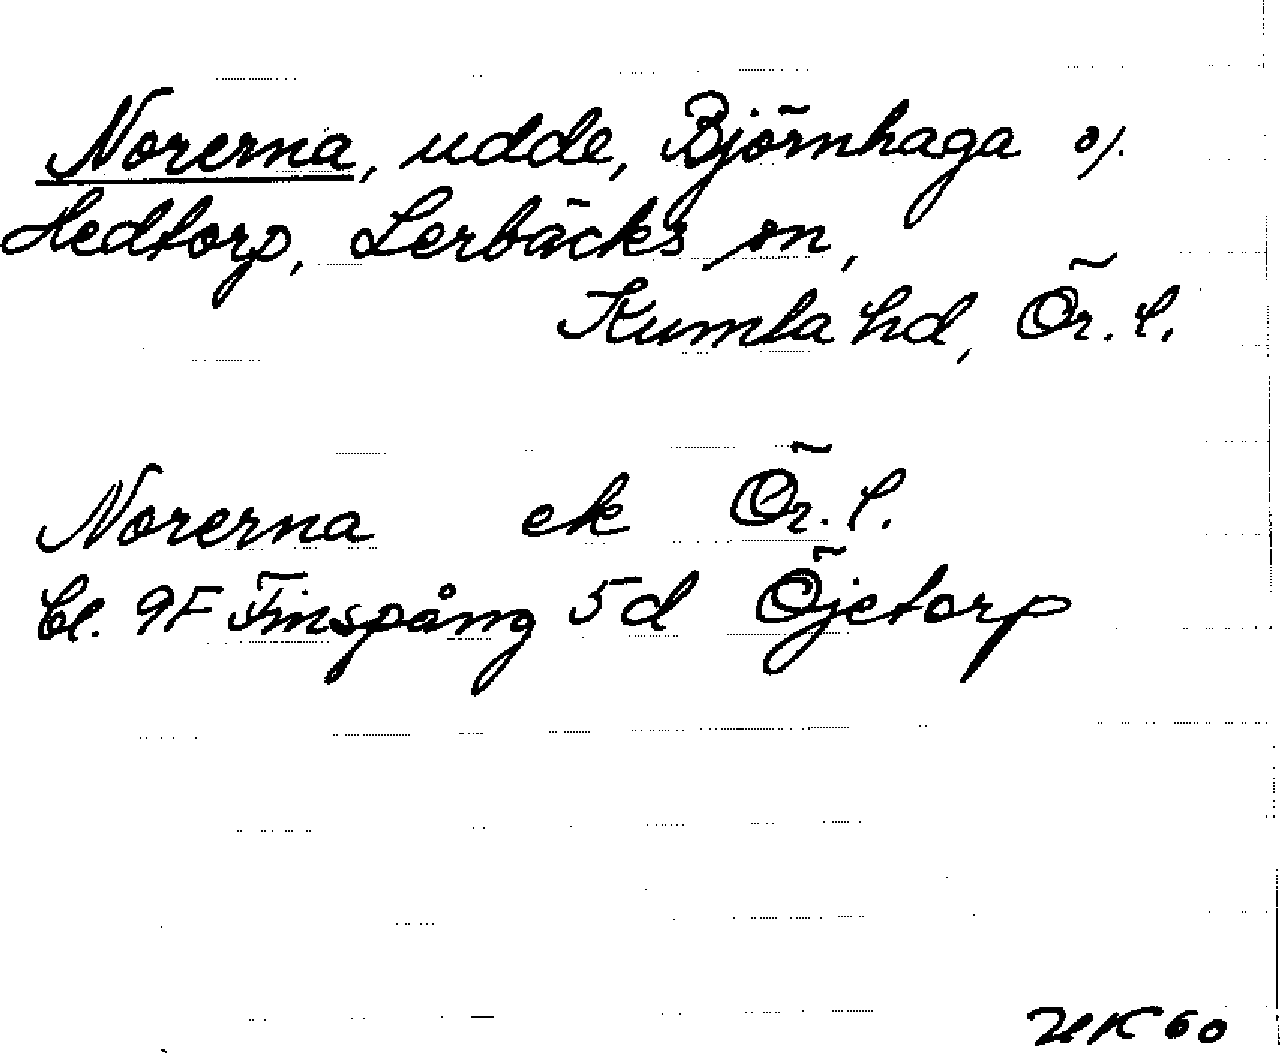 Norerna, udde, Björnhaga o/.
Hedtorp, Lerbäcks sn,
Kumla hd, Ör. l.
Norerna ek Ör. l.
bl. 9F Finspång 5d Öjetorp
HK 60